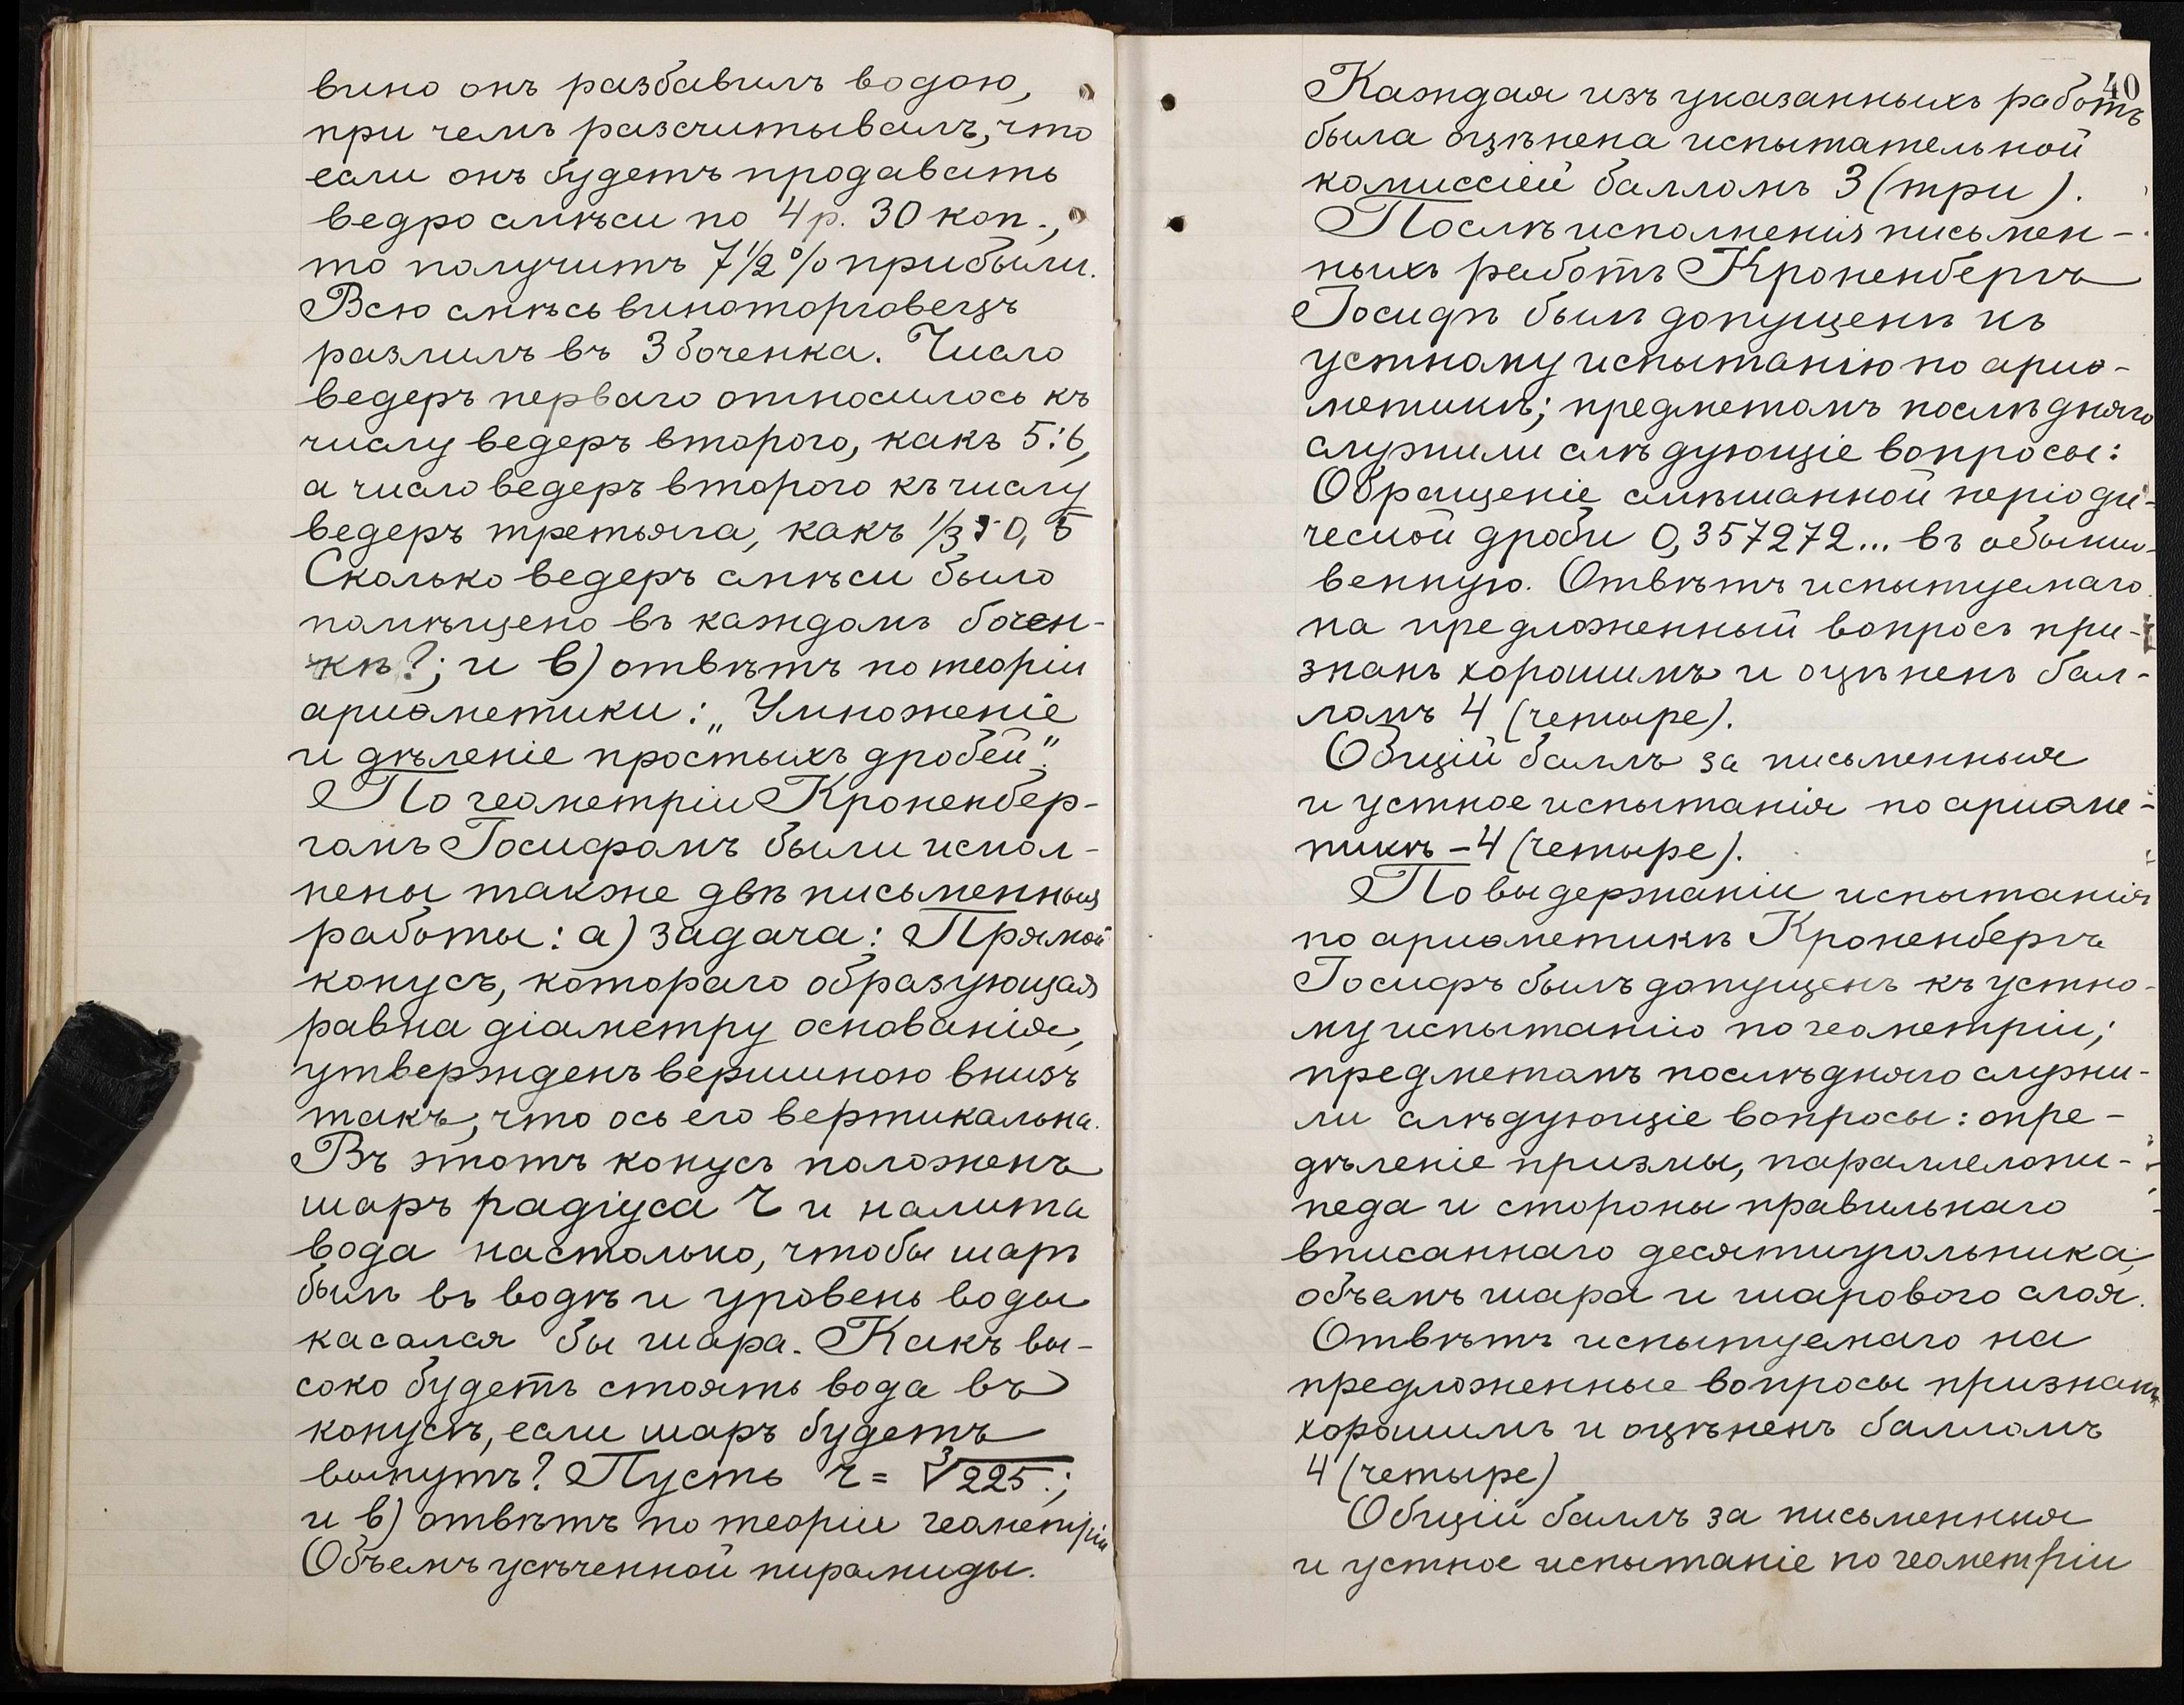 вино онъ разбавилъ водою,
при чемъ разсчитывалъ, что
если онъ будетъ продавать
ведро смѣси по 4 р. 30 коп.,
то получитъ 7 1/2 % прибыли.
Всю смѣсь виноторговецъ
разлилъ въ 3 боченка. Число
ведеръ перваго относилось къ
числу ведеръ второго, какъ 5:6,
а число ведеръ второго къ числу
ведеръ третьяго, какъ 1/3 : 0,5
Сколько ведеръ смѣси было
помѣщено въ каждомъ бочен-
кѣ?; и в) отвѣтъ по теоріи
ариѳметики: „Умноженіе
и дѣленіе простыхъ дробей".
По геометріи Кроненбер-
гомъ Іосифомъ были испол-
нены также двѣ письменныя
работы: а) задача: Прямой
конусъ, котораго образующая
равна діаметру основанія,
утвержденъ вершиною внизъ
такъ, что ось его вертикальна.
Въ этотъ конусъ положенъ
шаръ радіуса r и налита
вода настолько, чтобы шаръ
былъ въ водѣ и уровень воды
касался бы шара. Какъ вы-
соко будетъ стоять вода въ
конусѣ, если шаръ будетъ
вынутъ? Пусть r = ∛225.;
и в) отвѣтъ по теоріи геометріи
Объемъ усѣченной пирамиды.
40
Каждая изъ указанныхъ работъ
была оцѣнена испытательной
комиссіей балломъ 3 (три).
Послѣ исполненія письмен-
ныхъ работъ Кроненбергъ
Іосифъ былъ допущенъ къ
устному испытанію по ариѳ-
метикѣ; предметомъ послѣдняго
служили слѣдующіе вопросы:
Обращеніе смѣшанной періоди-
ческой дроби 0,357272... въ обыкно-
венную. Отвѣтъ испытуемаго
на предложенный вопросъ при-
знанъ хорошимъ и оцѣненъ бал-
ломъ 4 (четыре).
Общій баллъ за письменныя
и устное испытанія по ариѳме-
тикѣ – 4 (четыре).
По выдержаніи испытанія
по ариѳметикѣ Кроненбергъ
Іосифъ былъ допущенъ къ устно-
му испытанію по геометріи;
предметомъ послѣдняго служи-
ли слѣдующіе вопросы: опре-
дѣленіе призмы, параллелопи-
педа и стороны правильнаго
вписаннаго десятиугольника,
объемъ шара и шарового слоя.
Отвѣтъ испытуемаго на
предложенные вопросы признанъ
хорошимъ и оцѣненъ балломъ
4 (четыре)
Общій баллъ за письменныя
и устное испытаніе по геометріи